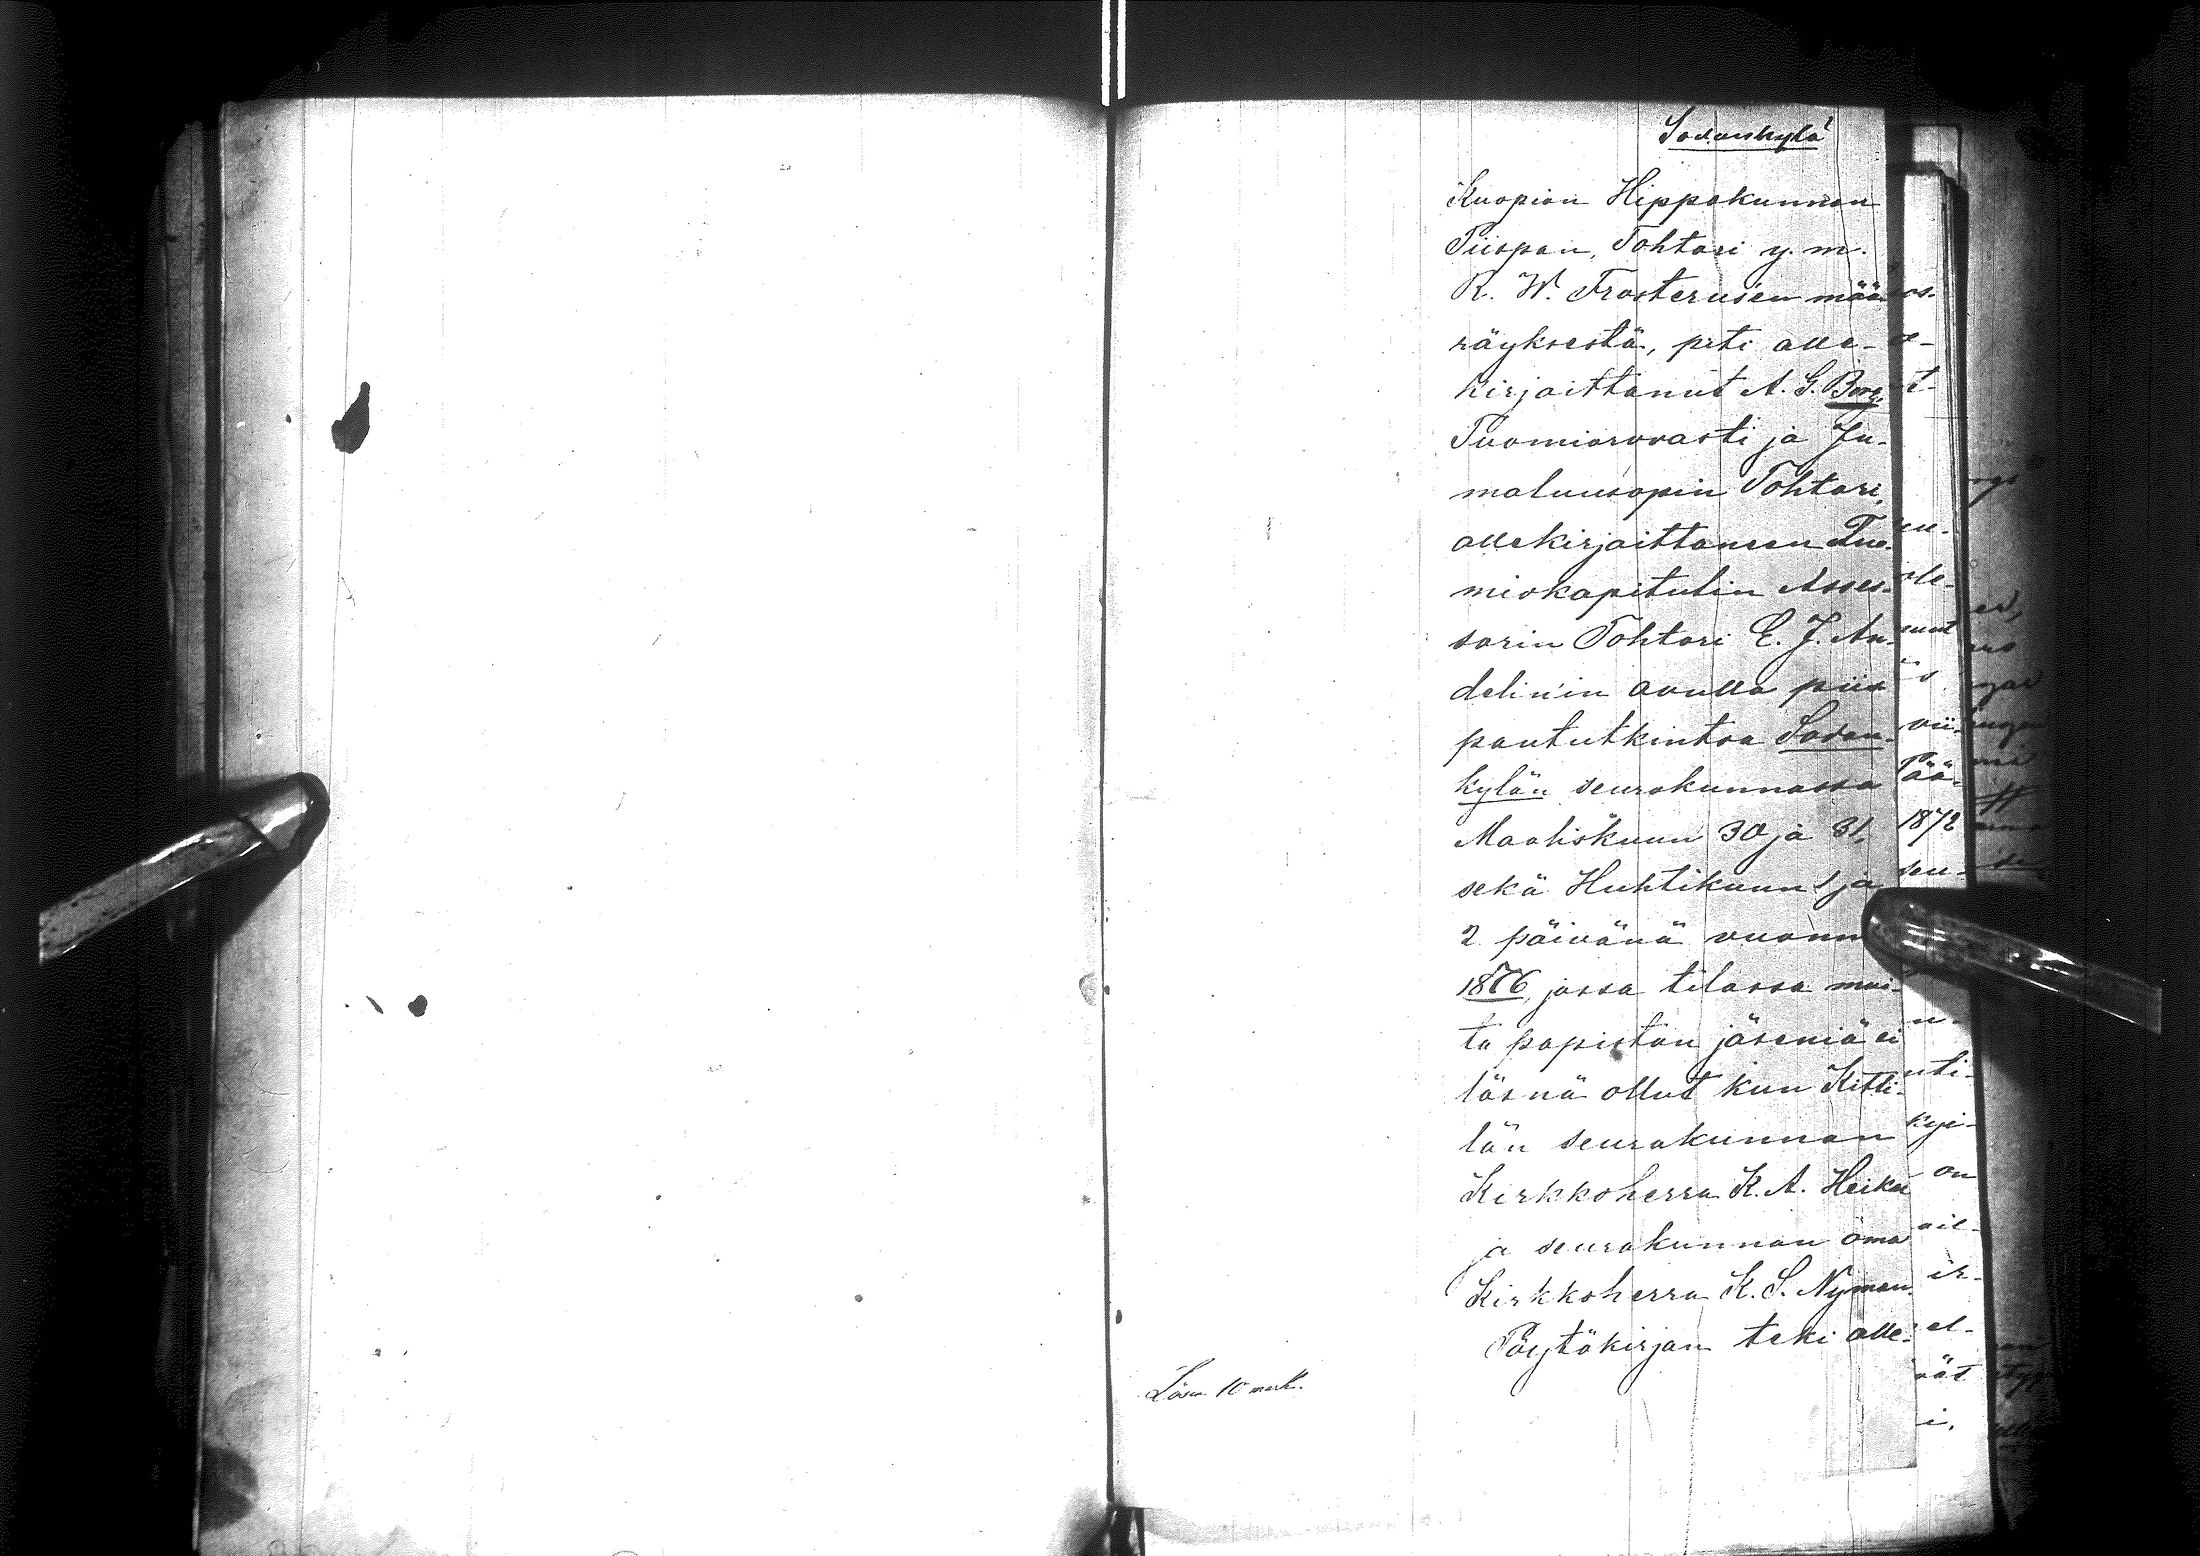 Sodankylä
Kuopion Hippakunnan
Piispan, Tohtori y. m.
R. W. Frosterus'en mää-
räyksestä, piti alle-
kirjoittanut A. G. Borg,
Tuomiorovasti ja Ju-
maluusopin Tohtori,
allekirjoittaneen Tuo-
miokapitulin Asses-
sorin Tohtori E. J. An-
delin'in avulla piis
pantutkintoa Sodan-
kylän seurakunnassa
Maaliskuun 30 ja 31,
sekä Huhtikuun 1 ja
2 päivänä vuonn
1876, jossa tilassa mui-
ta papiston jäseniä ei
läsnä ollut kun Kitti-
län seurakunnan
Kirkkoherra K. A. Heikel
ja seurakunnan oma
Kirkkoherra K. S. Nyman.
Pöytäkirjan teki alle-
Lösen 10 mark.
1872